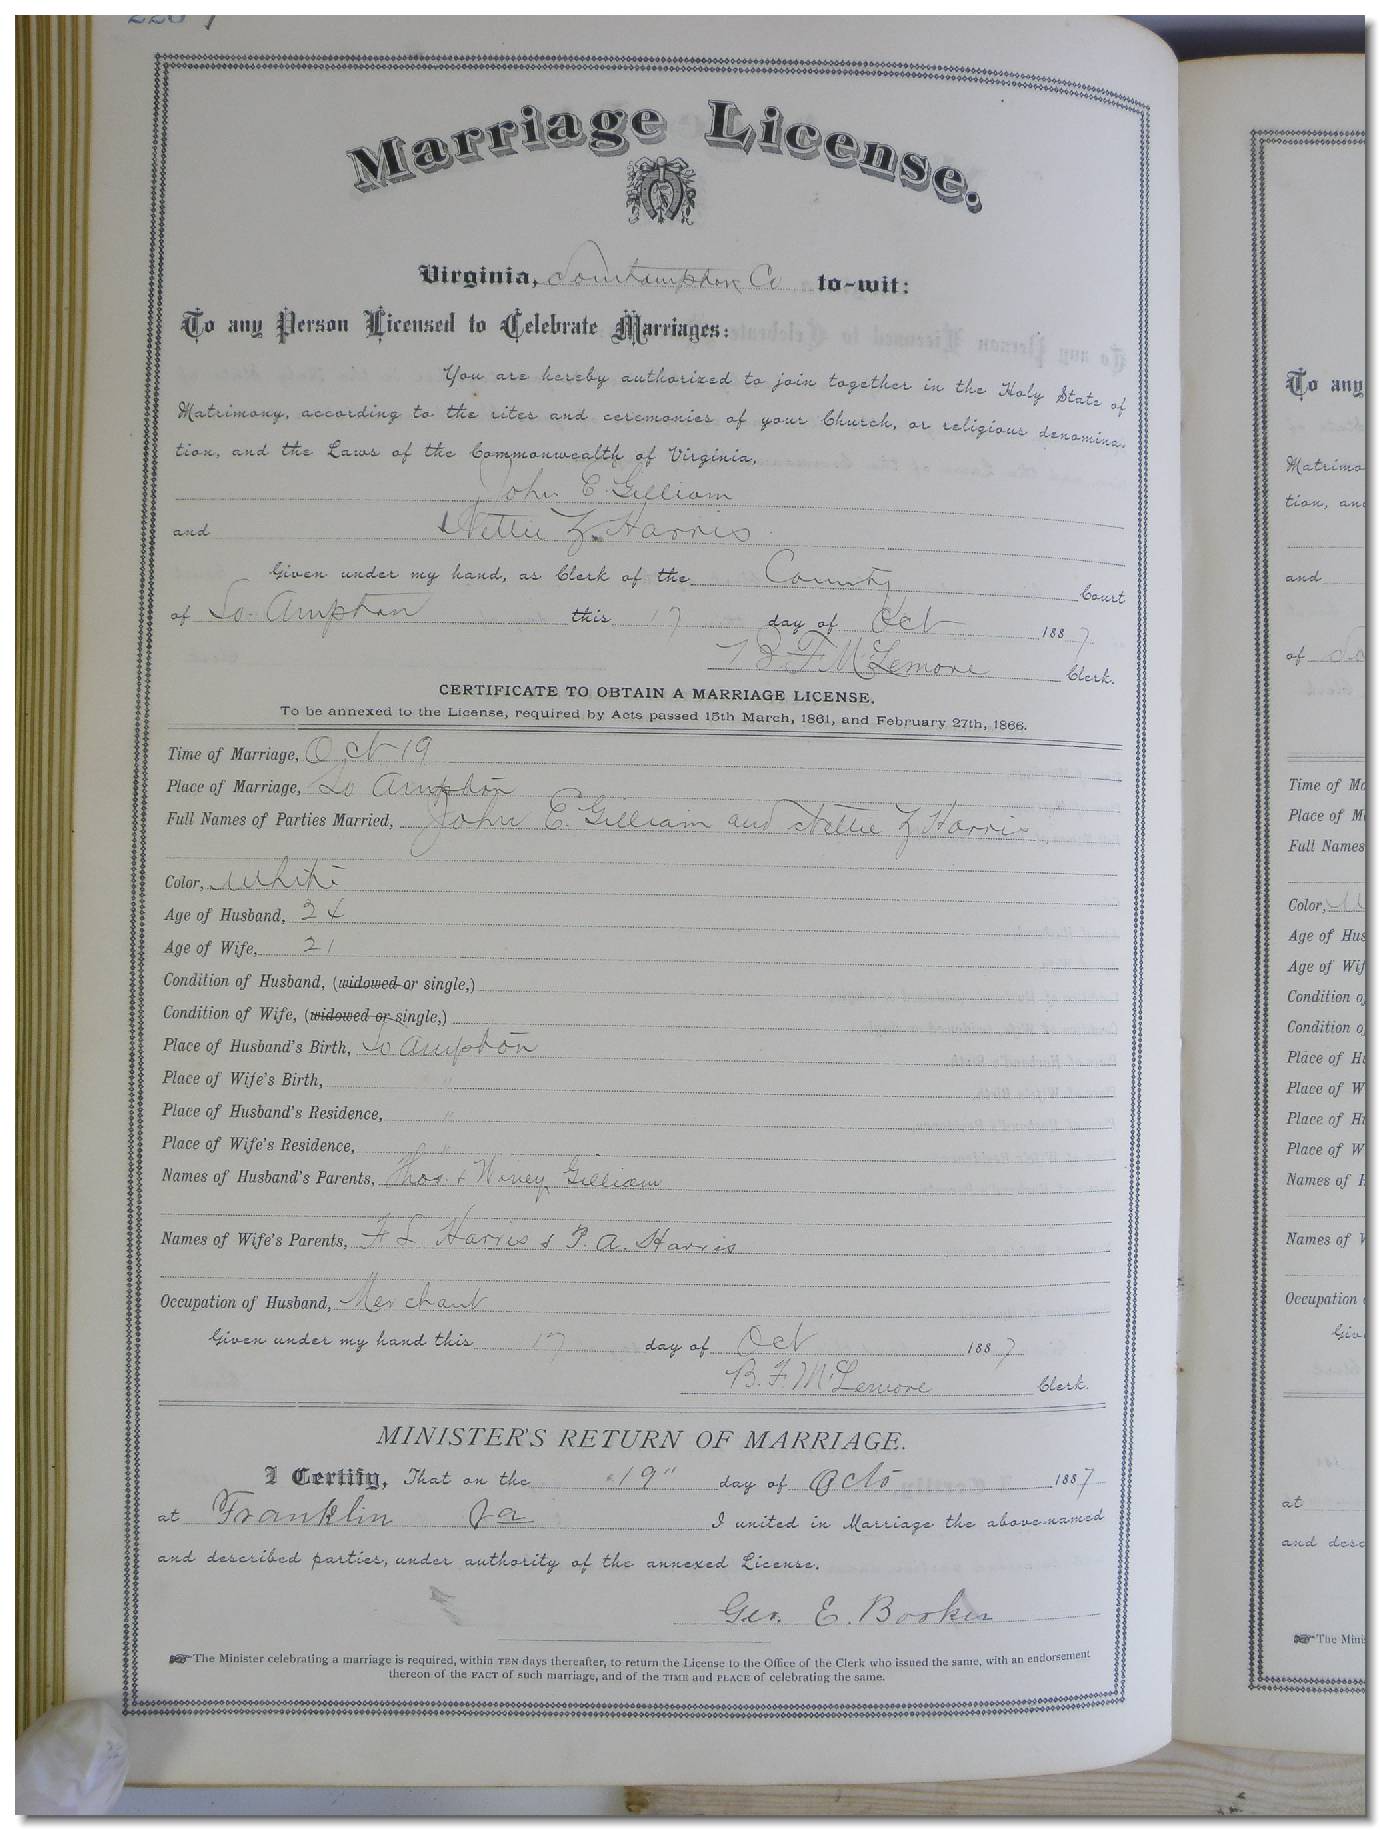 Marriage License.
Virginia, Southampton Co to-wit:
To any Person Licensed to Celebrate Marriages:
You are hereby authorized to join together in the Holy State of
Matrimony, according to the rites and ceremonies of your Church, or religious denomina-
tion, and the Laws of the Commonwealth of Virginia,
John E. Gilliam
and Nettie Z. Harris.
Given under my hand, as Clerk of the County Court
of So. Ampton this 17 day of Oct 1887
B F McLemore Clerk.
CERTIFICATE TO OBTAIN A MARRIAGE LICENSE.
To be annexed to the License, required by Acts passed 15th March, 1861, and February 27th, 1866.
Time of Marriage, Oct 19
Place of Marriage, So Ampton
Full Names of Parties Married, John E. Gilliam and Nettie Z Harris
Color, White
Age of Husband, 24
Age of Wife, 21
Condition of Husband, (widowed or single,)
Condition of Wife, (widowed or single,)
Place of Husband's Birth, So Ampton
Place of Wife's Birth, "
Place of Husband's Residence, "
Place of Wife's Residence, "
Names of Husband's Parents, Thos. & Gilliam
Names of Wife's Parents, Harris & P. A. Harris
Occupation of Husband, Merchant
Given under my hand this 17 day of Oct 1887
B. F. McLemore Clerk.
MINISTER'S RETURN OF MARRIAGE.
I Certify, That on the "19" day of Octo 1887
at Franklin Va I united in Marriage the above-named
and described parties, under authority of the annexed License.
Geo. E. Booker
The Minister celebrating a marriage is required, within TEN days thereafter, to return the License to the Office of the Clerk who issued the same, with an endorsement
thereon of the FACT of such marriage, and of the TIME and PLACE of celebrating the same.
To any
Matrimo
tion, an
and
of So
Time of Ma
Place of M
Full Names
Color,
Age of Hus
Age of Wif
Condition o
Condition o
Place of H
Place of W
Place of H
Place of W
Names of H
Names of W
Occupation
Giv
at
and desc
The Minis